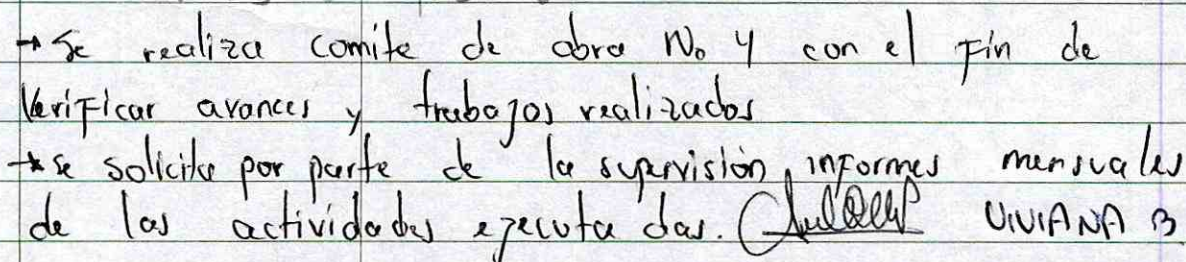 → Se realiza comite de obra No 4 con el Fin de
VeriFicar avances y trabajos realizados
→ se solicita por parte de la supervisión, inFormes mensuales
de las actividades ejecutadas. VIVIANA B